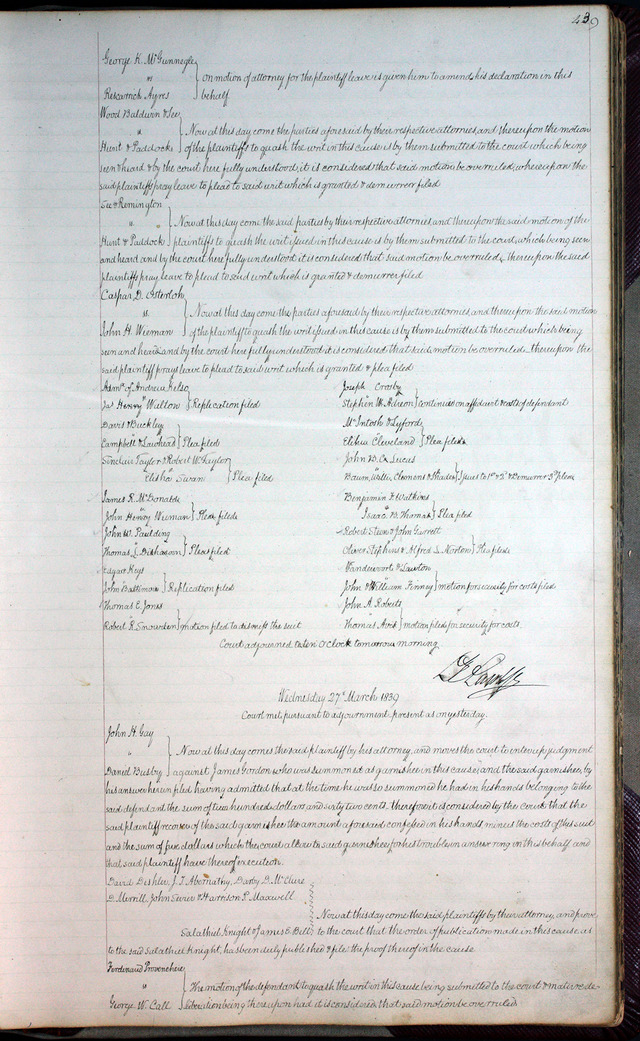 439
George K. McGunnegle
vs } on motion of attorney for the plaintiff leave is given him to amend his declaration in this
Ayres } behalf
Wood Baldwin & See
" } Now at this day come the parties aforesaid by their respective attornies, and thereupon the motion
Hunt & Paddock } of the plaintiffs to quash the writ in this cause is by them submitted to the court which being
seen & heard & by the court here fully understood, it is considered that said motion be overruled, whereupon the
said plaintiffs pray leave to plead to said writ which is granted & demurrer filed
& Remington
" } Now at this day come the said parties by their respective attornies, and thereupon the said motion of the
Hunt & Paddock } plaintiffs to quash the writ issued in this cause is by them submitted to the court, which being seen
and heard and by the court here fully understood it is considered that said motion be overruled, thereupon the said
plaintiffs pray leave to plead to said writ which is granted & demurrer filed
Caspar D. Osterloh
vs. } Now at this day come the parties aforesaid by their respective attornies, and thereupon the said motion
John H. Wieman } of the plaintiff to quash the writ issued in this cause is by them submitted to the court which being
seen and heard and by the court here fully understood it is considered that said motion be overruled thereupon the
said plaintiff prays leave to plead to said writ which is granted & plea filed
Adm'r of Andrew Kelso
Jas Henry Walton } Replication filed
Joseph Crosby
Stephen W. Adreon } continues on affidavit & costs of defendant
Davis & Buckley
Campbell & Lawhead } Plea filed
McIntosh & Lyford
Elihu Cleveland } Plea filed
Sinclair Taylor & Robert W. Taylor
Elisha Swan } Plea filed
John B. C. Lucas
Baum, Willis, Clemens & } Issues to 1st & 2d & Demurrer 3d pleas
James R. McDonald
John Henry Wieman } Plea filed
Benjamin F. Watkins
Isaac B. Thomas } Plea filed
John W. Paulding
Thomas J. } Pleas filed
Robert Steen & John Garrett
Oliver Stephens & Alfred S. Norton } Plea filed
Edgar Keys
John Battimore } Replication filed
Vandervort & Lawton
John & William Finney } motion for security for costs filed
Thomas E. Jones
Robert R. Snowden } motion filed to dismiss the suit
John A. Roberts
Thomas Avis } motion filed for security for costs.
Court adjourned to ten O'Clock tomorrow morning
Wednesday 27th March 1839
Court met pursuant to adjournment, present as on yesterday.
John H. Gay
" } Now at this day comes the said plaintiff by his attorney, and moves the court to enter up judgment
Daniel Busby } against James Gordon who was summoned as garnishee in this cause, and the said garnishee, by
his answer herein filed having admitted that at the time he was so summoned he had in his hands belonging to the
said defendant the sum of ten hundred dollars and sixty two cents. therefore it is considered by the court that the
said plaintiff recover of the said garnishee the amount aforesaid confessed in his hands minus the costs of this suit
and the sum of five dollars which the court allow to said garnishee for his trouble in answering in this behalf and
that said plaintiff have thereof execution.
David Deshler, J. T. Abernathy, Darby D. McClure
D. Merrill, John Sevier & Harrison P. Maxwell
" } Now at this day come the said plaintiffs by their attorney, and prove
Salathiel Knight & James E. Bell } to the court that the order of publication made in this cause as
to the said Salathiel Knight, has been duly published & file the proof thereof in the cause
Ferdinand Provenchere
" } The motion of the defendant to quash the writ in this cause being submitted to the court & mature de-
George W. Call } liberation being thereupon had it is considered that said motion be overruled